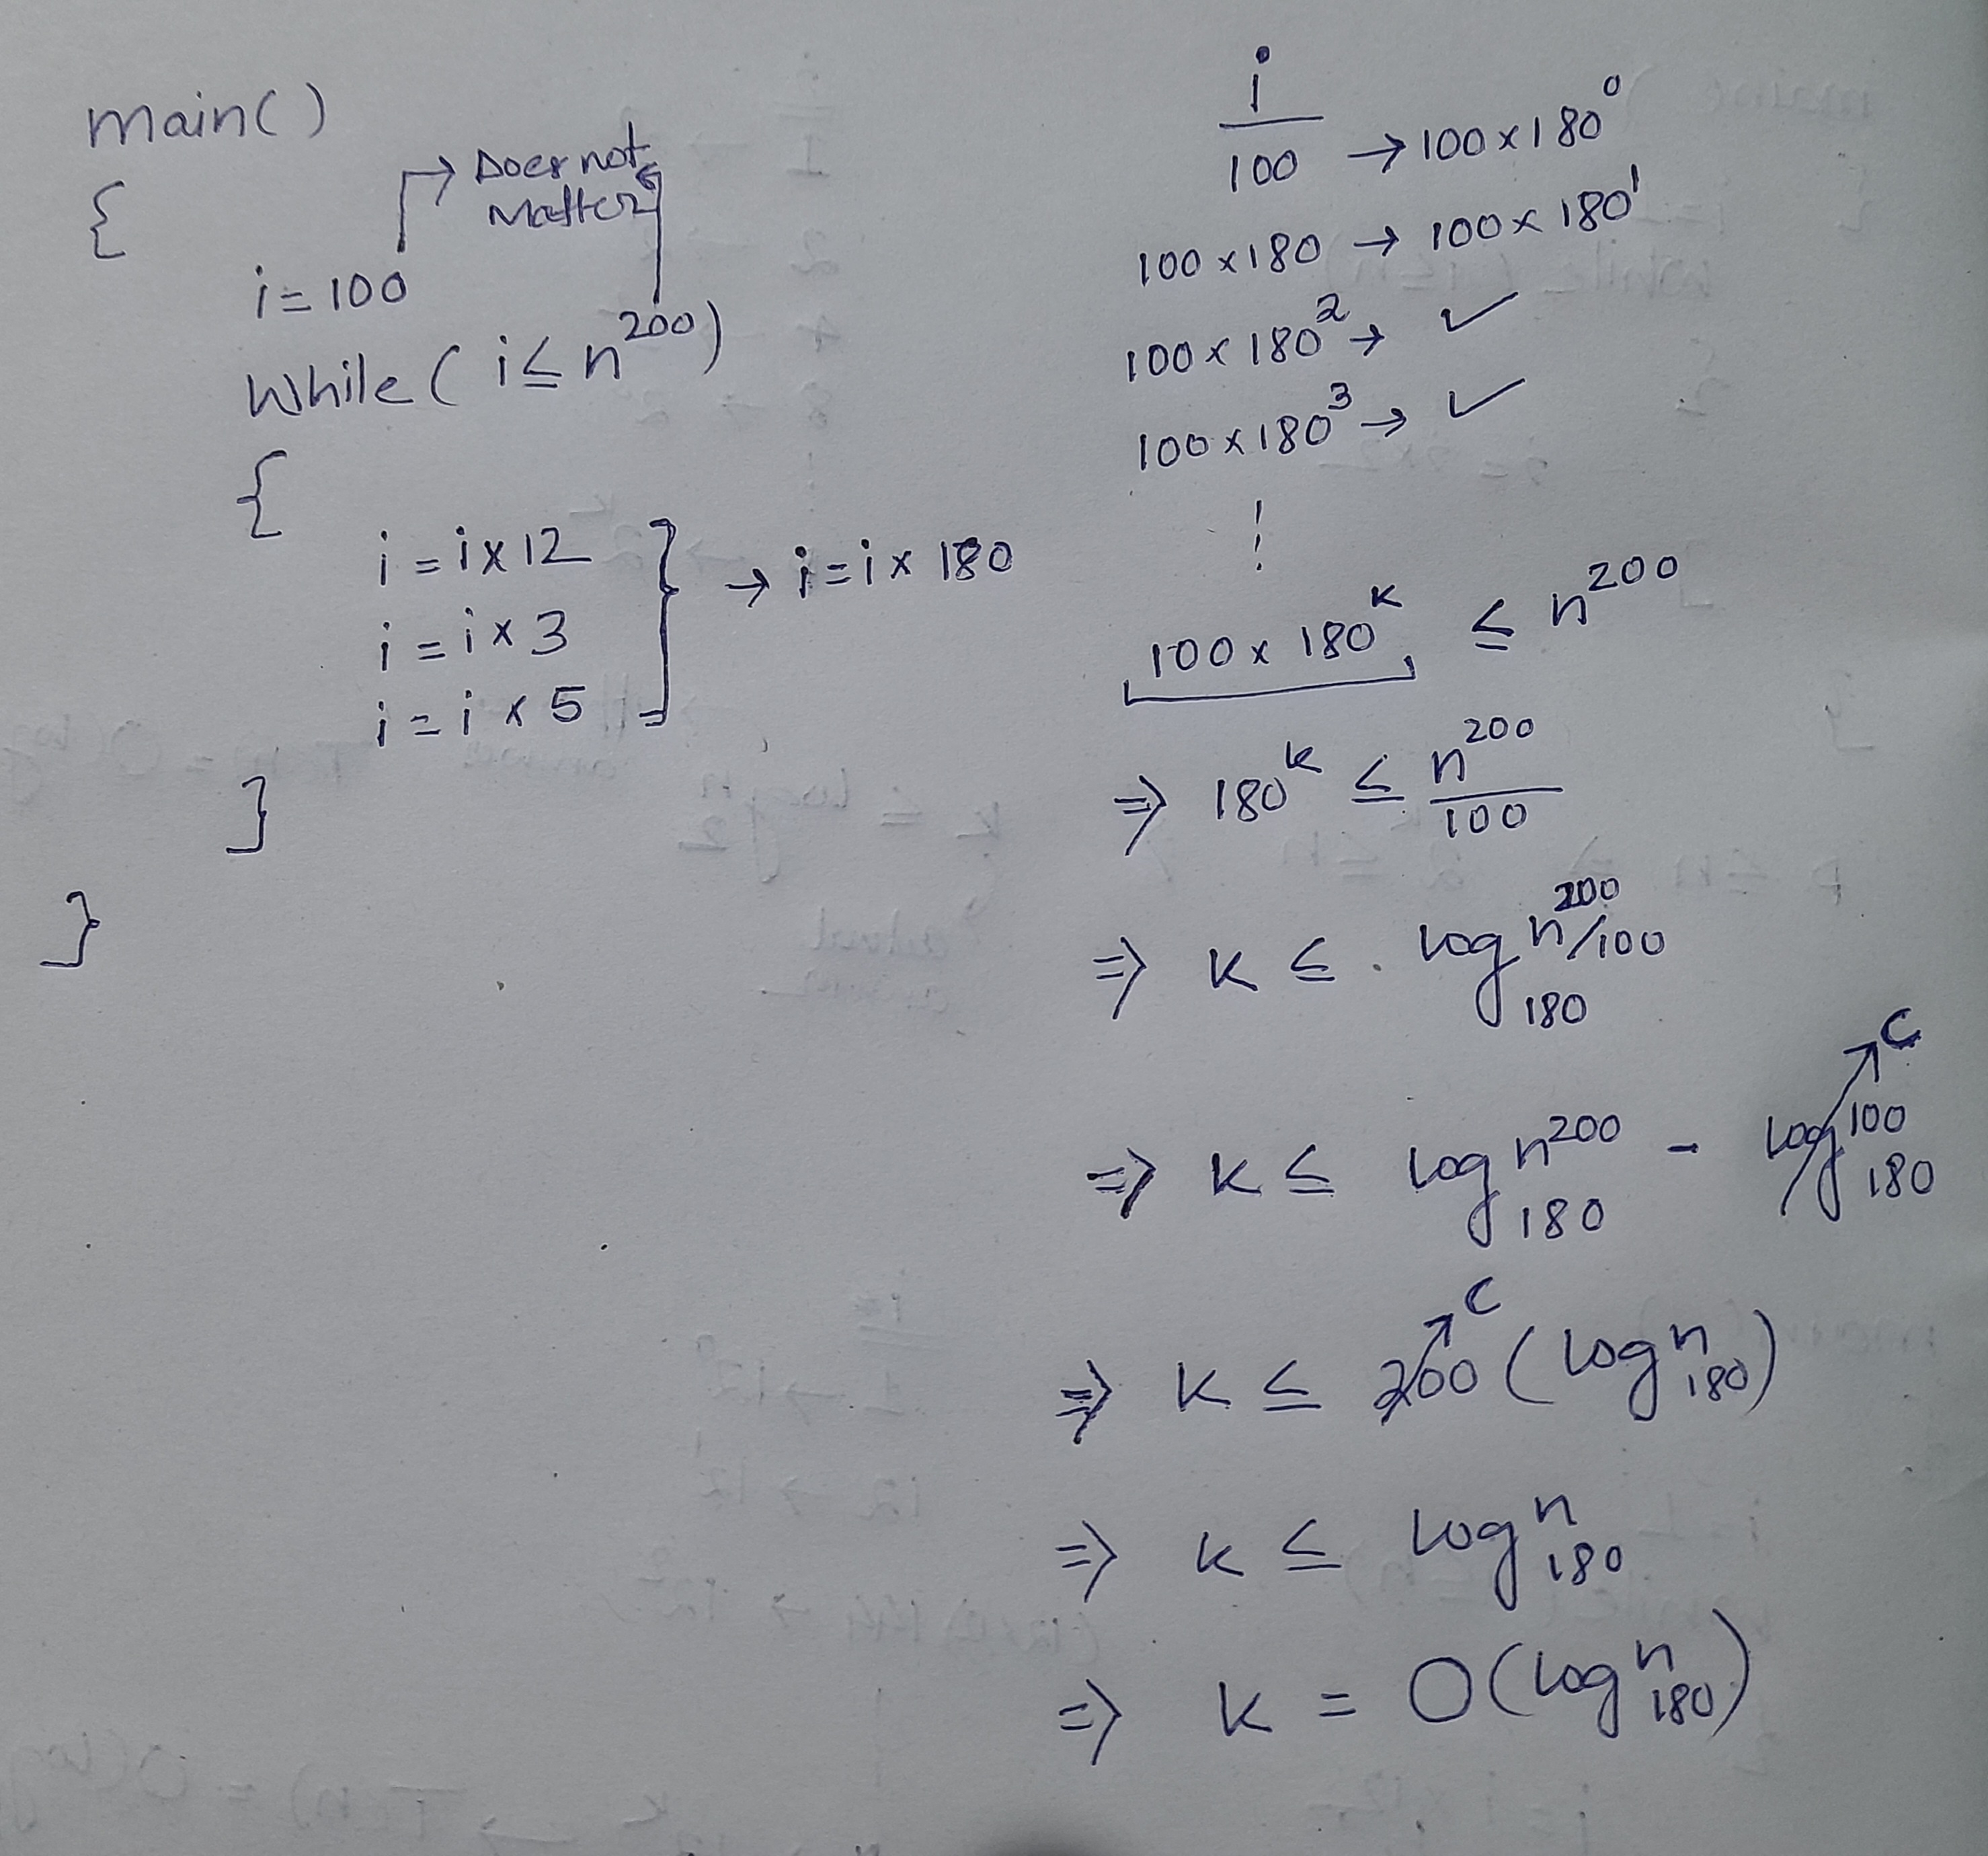 main()
{
→ Does not
Matter
i = 100
While ( i ≤ n^200 )
{
i = i x 12
i = i x 3
i = i x 5
} → i = i x 180
}
}
i
100 → 100 x 180^0
100 x 180 → 100 x 180^1
100 x 180^2 → ✓
100 x 180^3 → ✓
⋮
100 x 180^K ≤ n^200
⇒ 180^k ≤ n^200 / 100
⇒ K ≤ . log_180 n^200/100
⇒ K ≤ log_180 n^200 - log_180 100 ↗ C
⇒ K ≤ 200 ↗ C ( log_180 n )
⇒ K ≤ log_180 n
⇒ K = O( log_180 n )